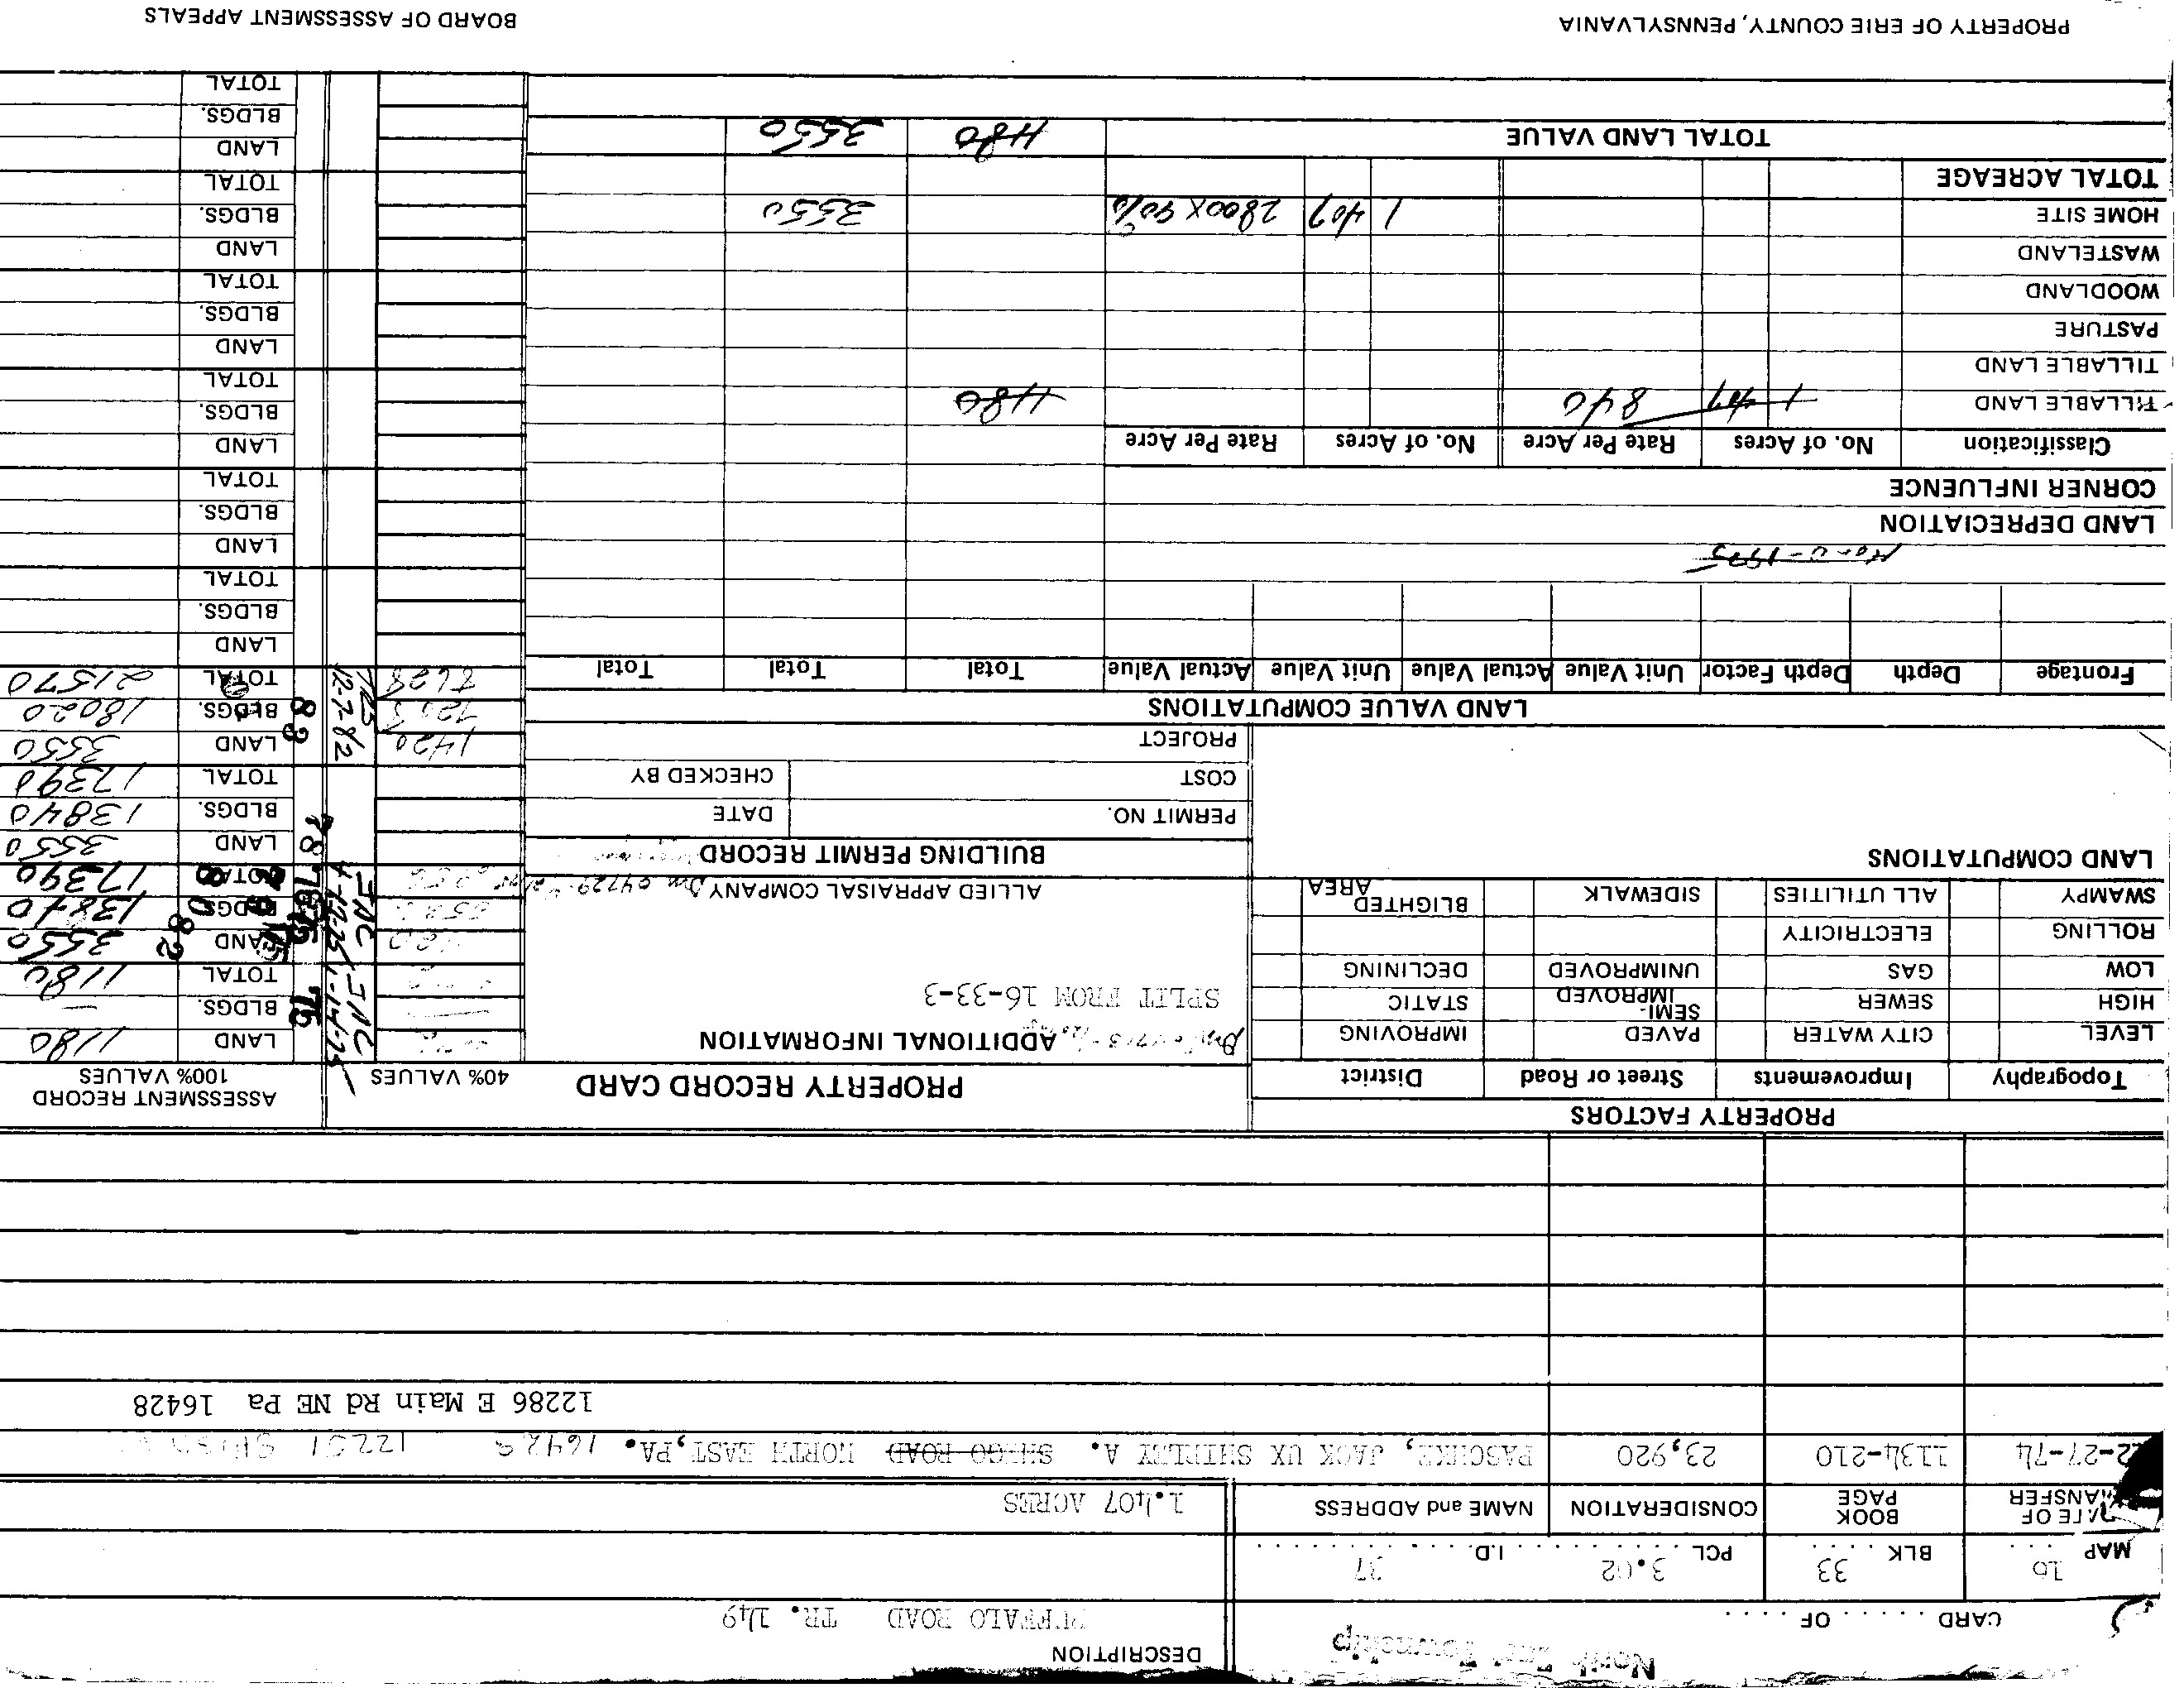 North East Township
DESCRIPTION
CARD . . . . . . OF . . . . . .
BUFFALO ROAD TR. 149
MAP 16 BLK 33 PCL 3.02 I.D. 37
DATE OF TRANSFER BOOK PAGE CONSIDERATION NAME and ADDRESS
1.407 ACRES
12-27-74 1134-210 23,920 PASCHKE, JACK UX SHIRLEY A. SHEGO ROAD NORTH EAST, PA. 16428 12251
12286 E Main Rd NE Pa 16428
PROPERTY FACTORS
PROPERTY RECORD CARD
40% VALUES
ASSESSMENT RECORD
100% VALUES
Topography Improvements Street or Road District
LEVEL CITY WATER PAVED IMPROVING
HIGH SEWER SEMI-IMPROVED STATIC
LOW GAS UNIMPROVED DECLINING
ROLLING ELECTRICITY
SWAMPY ALL UTILITIES SIDEWALK BLIGHTED AREA
ADDITIONAL INFORMATION
SPLIT FROM 16-33-3
ALLIED APPRAISAL COMPANY
LAND COMPUTATIONS
BUILDING PERMIT RECORD
PERMIT NO. DATE
COST CHECKED BY
PROJECT
75 LAND 1180
BLDGS. —
TOTAL 1180
80 82 LAND 3550
BLDGS. 13840
TOTAL 17390
78 LAND 3550
BLDGS. 13840
TOTAL 17390
1420 12-7-82 83 LAND 3550
7208 BLDGS. 18020
8628 TOTAL 21570
LAND VALUE COMPUTATIONS
Frontage Depth Depth Factor Unit Value Actual Value Unit Value Actual Value Total Total Total
LAND DEPRECIATION
CORNER INFLUENCE
Classification No. of Acres Rate Per Acre No. of Acres Rate Per Acre
TILLABLE LAND 1 407 840 1180
TILLABLE LAND
PASTURE
WOODLAND
WASTELAND
HOME SITE 1 407 2800 X 90% 3550
TOTAL ACREAGE
TOTAL LAND VALUE 1180 3550
LAND
BLDGS.
TOTAL
LAND
BLDGS.
TOTAL
LAND
BLDGS.
TOTAL
LAND
BLDGS.
TOTAL
LAND
BLDGS.
TOTAL
LAND
BLDGS.
TOTAL
PROPERTY OF ERIE COUNTY, PENNSYLVANIA
BOARD OF ASSESSMENT APPEALS